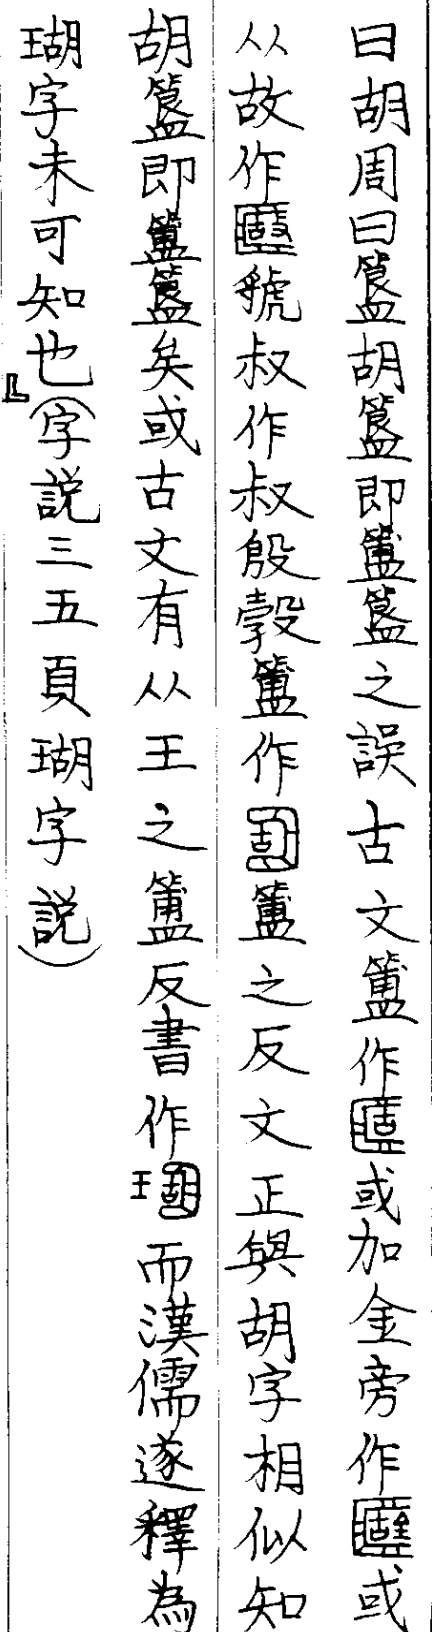 曰胡周曰簋胡簋即簠簋之誤古文簠作或加金旁作或
从故作虢叔作叔殷穀簠作簠之反文正與胡字相似知
胡簋即簠簋矣或古文有从王之簠反書作而漢儒遂釋為
瑚字未可知也」(字説三五頁瑚字説)